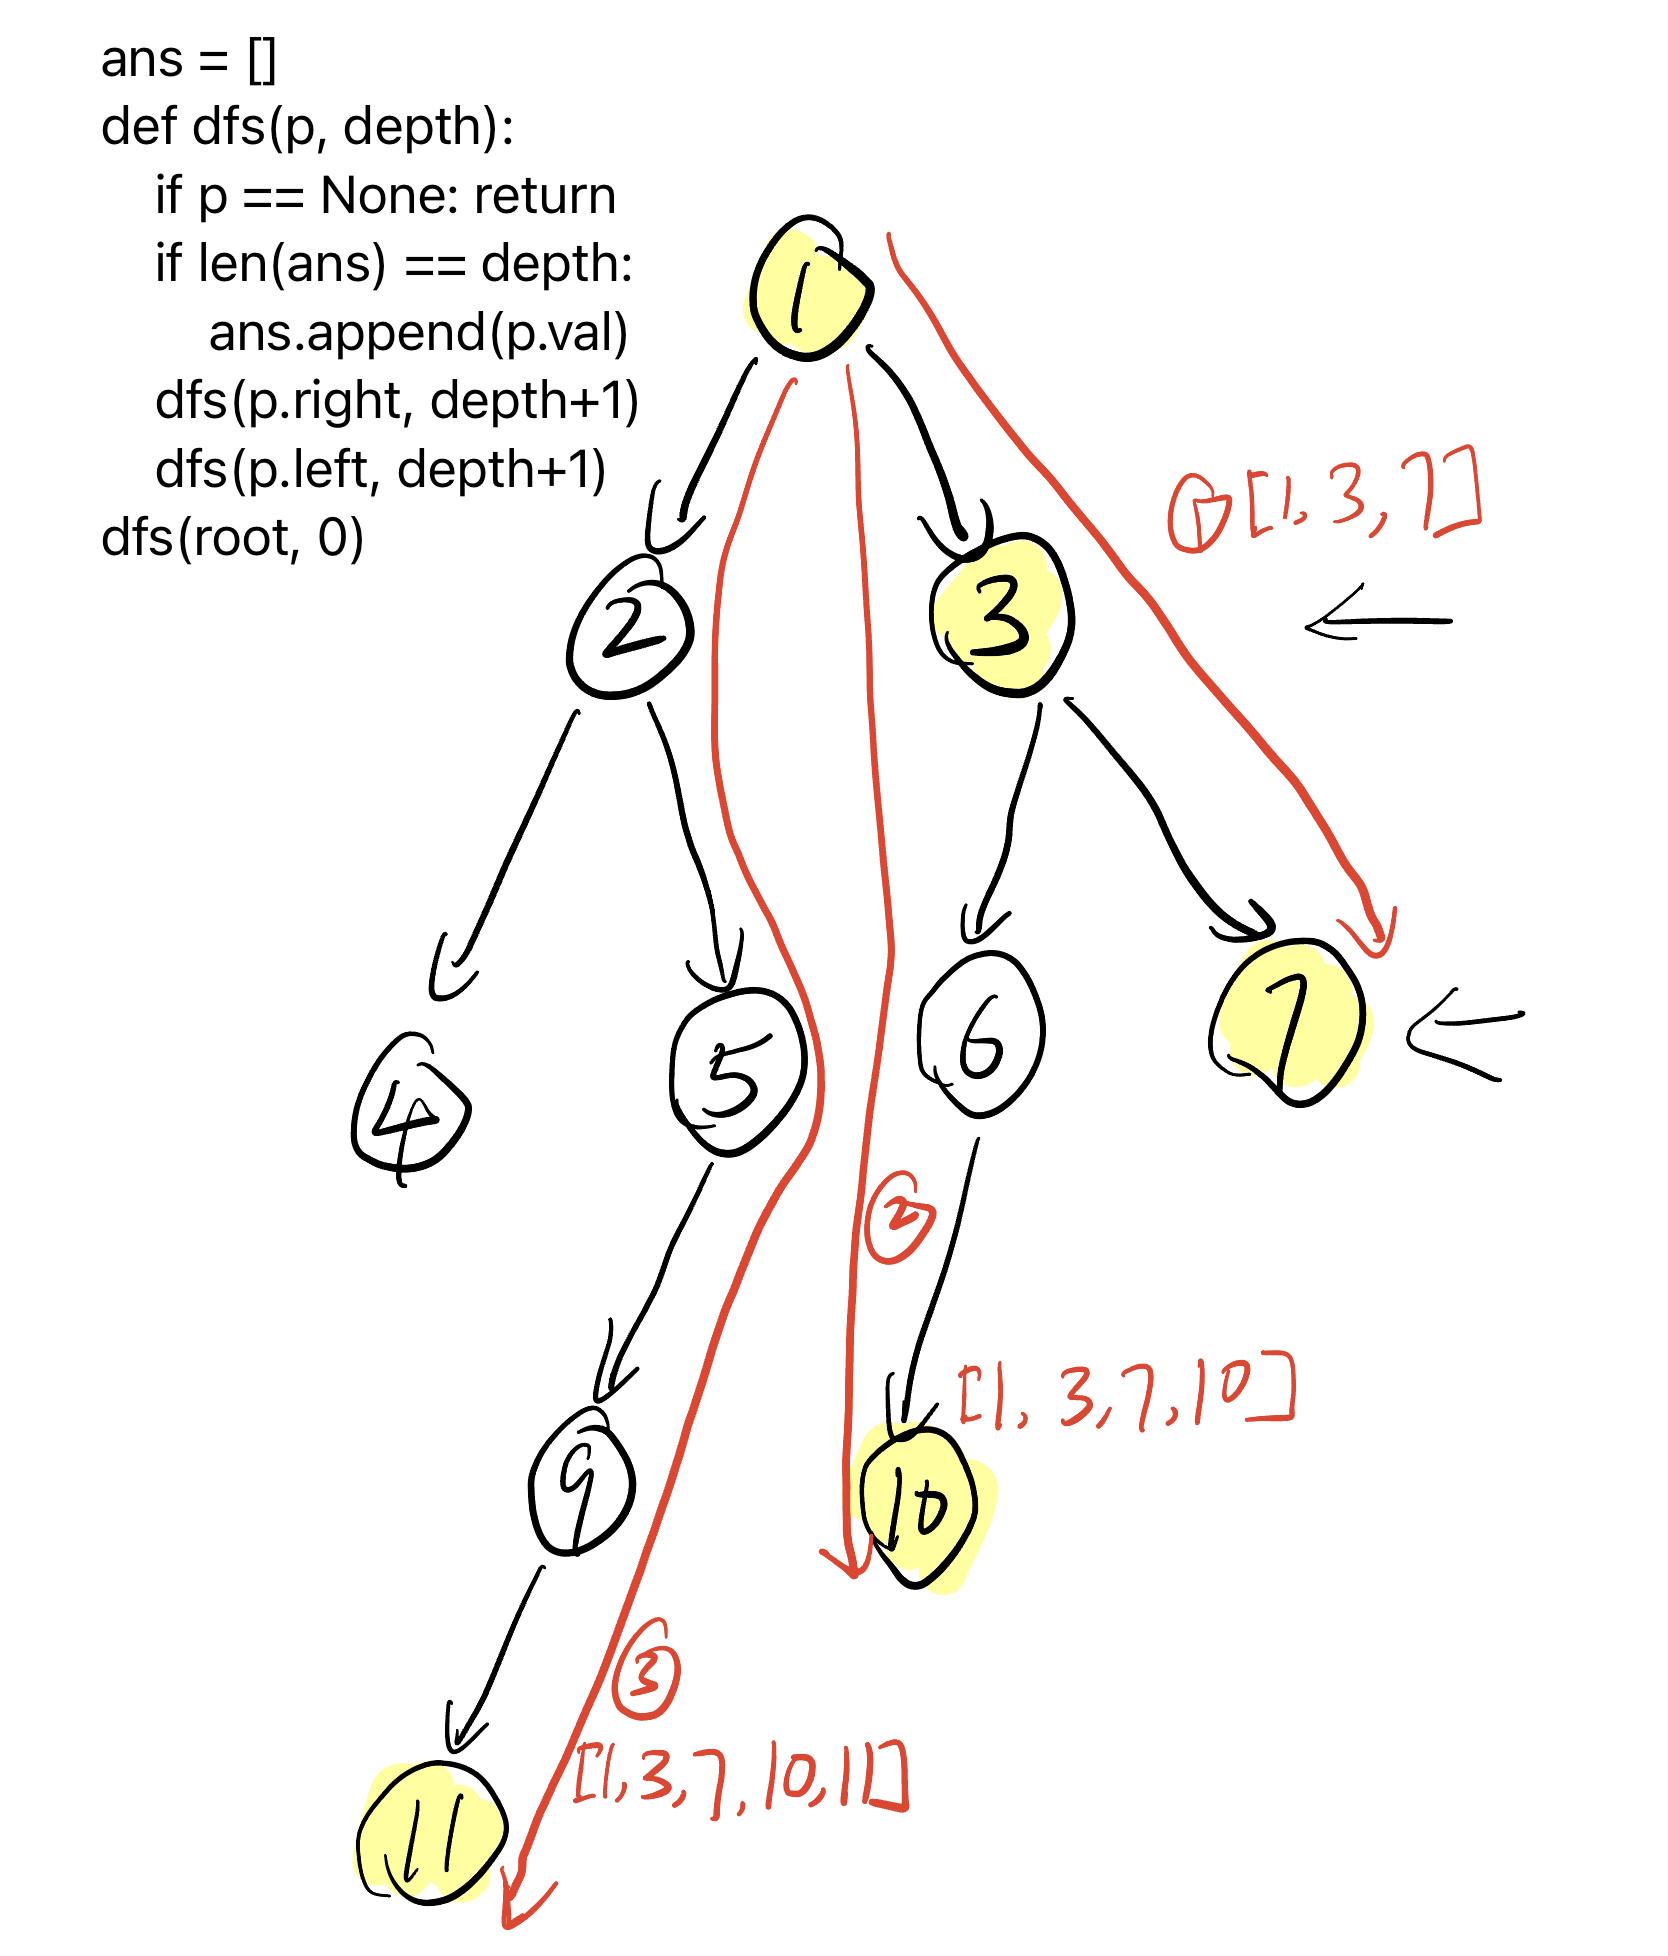 ans = []
def dfs(p, depth):
if p == None: return
if len(ans) == depth:
ans.append(p.val)
dfs(p.right, depth+1)
dfs(p.left, depth+1)
dfs(root, 0)
1
① [1, 3, 7]
2
3
4
5
6
7
②
[1, 3, 7, 10]
9
10
③
[1, 3, 7, 10, 11]
11